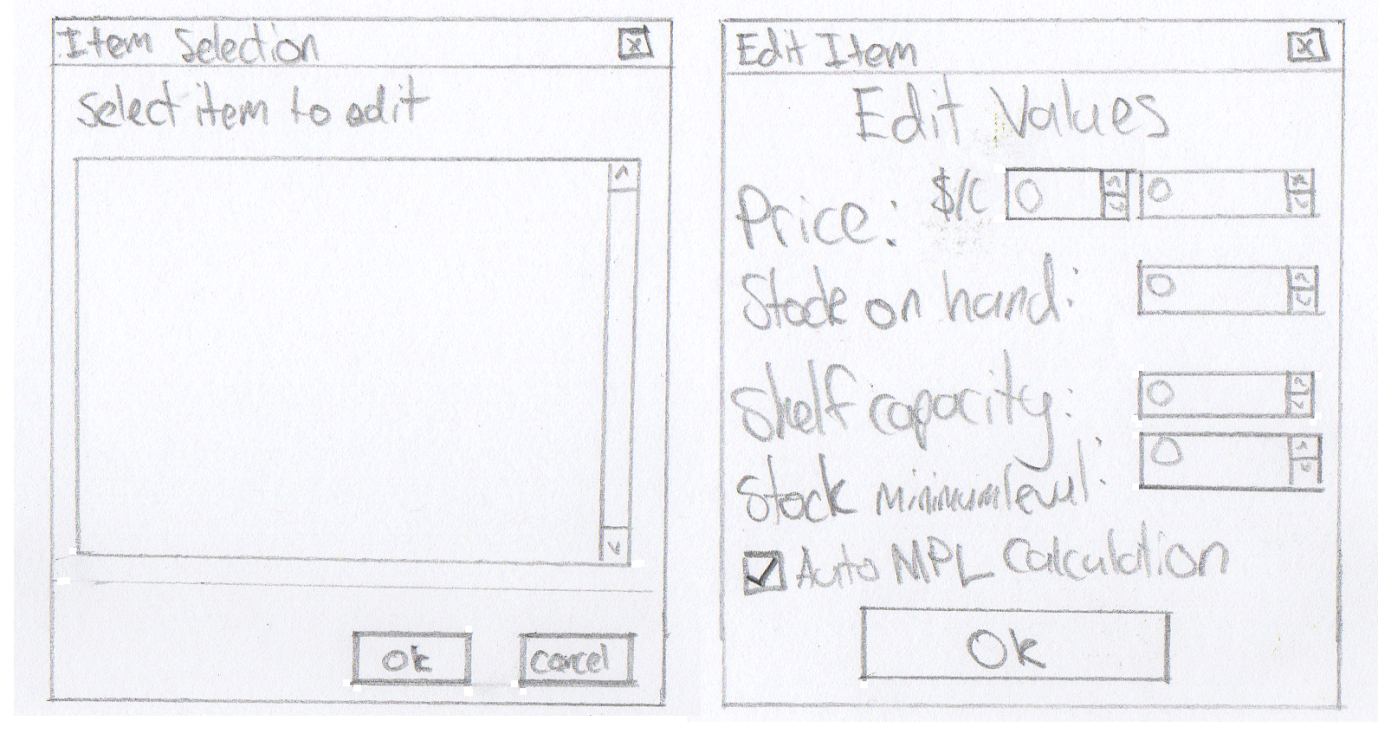 Item Selection x
Select item to edit
Ok Cancel
Edit Item x
Edit Values
Price: $/c 0 0
Stock on hand: 0
Shelf capacity: 0
Stock minimum level: 0
Auto MPL Calculation
Ok